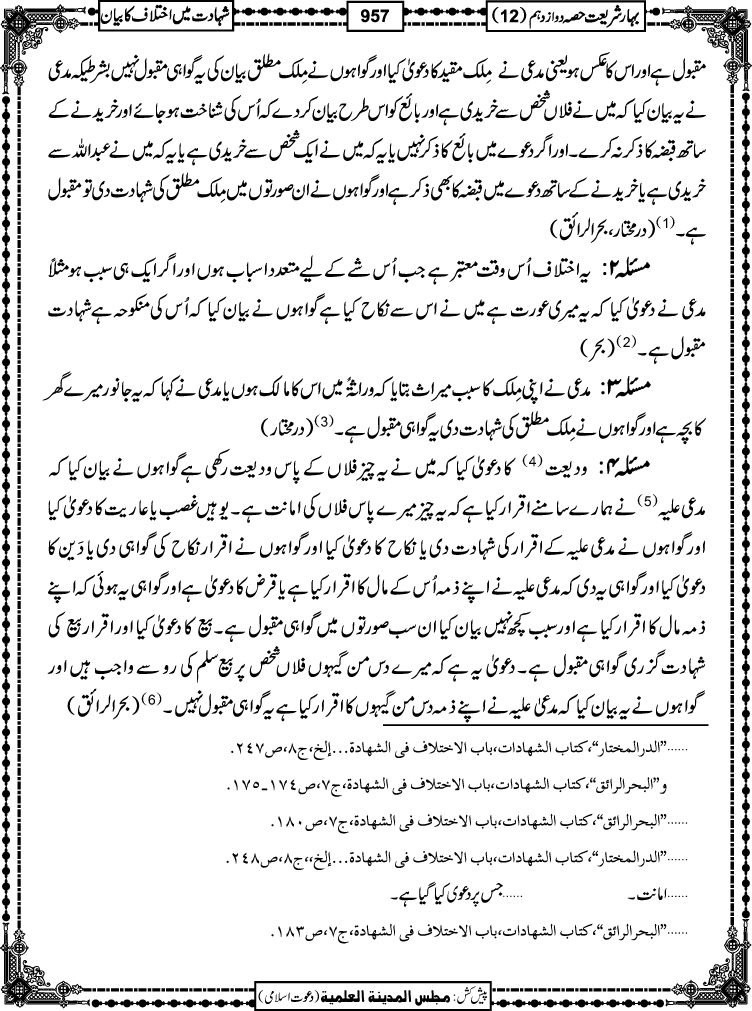 بہار شریعت حصہ دوازدہم (12)
957
شہادت میں اختلاف کا بیان
مقبول ہے اور اس کا عکس ہو یعنی مدعی نے مِلک مقید کا دعویٰ کیا اور گواہوں نے مِلک مطلق بیان کی یہ گواہی مقبول نہیں بشرطیکہ مدعی
نے یہ بیان کیا کہ میں نے فلاں شخص سے خریدی ہے اور بائع کو اس طرح بیان کر دے کہ اُس کی شناخت ہو جائے اور خریدنے کے
ساتھ قبضہ کا ذکر نہ کرے۔ اور اگر دعوے میں بائع کا ذکر نہیں یا یہ کہ میں نے ایک شخص سے خریدی ہے یا یہ کہ میں نے عبداللہ سے
خریدی ہے یا خریدنے کے ساتھ دعوے میں قبضہ کا بھی ذکر ہے اور گواہوں نے ان صورتوں میں مِلک مطلق کی شہادت دی تو مقبول
ہے۔(1) (درمختار، بحرالرائق)
مسئلہ ۲: یہ اختلاف اُس وقت معتبر ہے جب اُس شے کے لیے متعدد اسباب ہوں اور اگر ایک ہی سبب ہو مثلاً
مدعی نے دعویٰ کیا کہ یہ میری عورت ہے میں نے اس سے نکاح کیا ہے گواہوں نے بیان کیا کہ اُس کی منکوحہ ہے شہادت
مقبول ہے۔(2) (بحر)
مسئلہ ۳: مدعی نے اپنی مِلک کا سبب میراث بتایا کہ وراثۃً میں اس کا مالک ہوں یا مدعی نے کہا کہ یہ جانور میرے گھر
کا بچہ ہے اور گواہوں نے مِلک مطلق کی شہادت دی یہ گواہی مقبول ہے۔(3) (درمختار)
مسئلہ ۴: ودیعت (4) کا دعویٰ کیا کہ میں نے یہ چیز فلاں کے پاس ودیعت رکھی ہے گواہوں نے بیان کیا کہ
مدعی علیہ(5) نے ہمارے سامنے اقرار کیا ہے کہ یہ چیز میرے پاس فلاں کی امانت ہے۔ یوہیں غصب یا عاریت کا دعویٰ کیا
اور گواہوں نے مدعی علیہ کے اقرار کی شہادت دی یا نکاح کا دعویٰ کیا اور گواہوں نے اقرار نکاح کی گواہی دی یا دَین کا
دعویٰ کیا اور گواہی یہ دی کہ مدعی علیہ نے اپنے ذمہ اُس کے مال کا اقرار کیا ہے یا قرض کا دعویٰ ہے اور گواہی یہ ہوئی کہ اپنے
ذمہ مال کا اقرار کیا ہے اور سبب کچھ نہیں بیان کیا ان سب صورتوں میں گواہی مقبول ہے۔ بیع کا دعویٰ کیا اور اقرار بیع کی
شہادت گزری گواہی مقبول ہے۔ دعویٰ یہ ہے کہ میرے دس من گیہوں فلاں شخص پر بیع سلم کی رو سے واجب ہیں اور
گواہوں نے یہ بیان کیا کہ مدعیٰ علیہ نے اپنے ذمہ دس من گیہوں کا اقرار کیا ہے یہ گواہی مقبول نہیں۔(6) (بحرالرائق)
......"الدرالمختار"،کتاب الشهادات،باب الاختلاف فی الشهادة...إلخ،ج٨،ص٢٤٧.
و"البحرالرائق"،کتاب الشهادات،باب الاختلاف فی الشهادة،ج٧،ص١٧٤۔١٧٥.
......"البحرالرائق"،کتاب الشهادات،باب الاختلاف فی الشهادة،ج٧،ص١٨٠.
......"الدرالمختار"،کتاب الشهادات،باب الاختلاف فی الشهادة...إلخ،،ج٨،ص٢٤٨.
......امانت۔ ......جس پر دعویٰ کیا گیا ہے۔
......"البحرالرائق"،کتاب الشهادات،باب الاختلاف فی الشهادة،ج٧،ص١٨٣.
پیش کش: مجلس المدینة العلمیة (دعوت اسلامی)